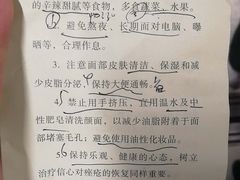 的辛辣甜腻等食物，多食蔬菜、水果。
②避免熬夜、长期面对电脑、曝
晒等，合理作息。
3. 注意面部皮肤清洁、保湿和减
少皮脂分泌，保持大便通畅。
4. 禁止用手挤压，宜用温水及中
性肥皂清洗颜面，以减少油脂附着于面
部堵塞毛孔；避免使用油性化妆品。
5. 保持乐观、健康的心态，树立
治疗信心对痤疮的恢复同样重要。